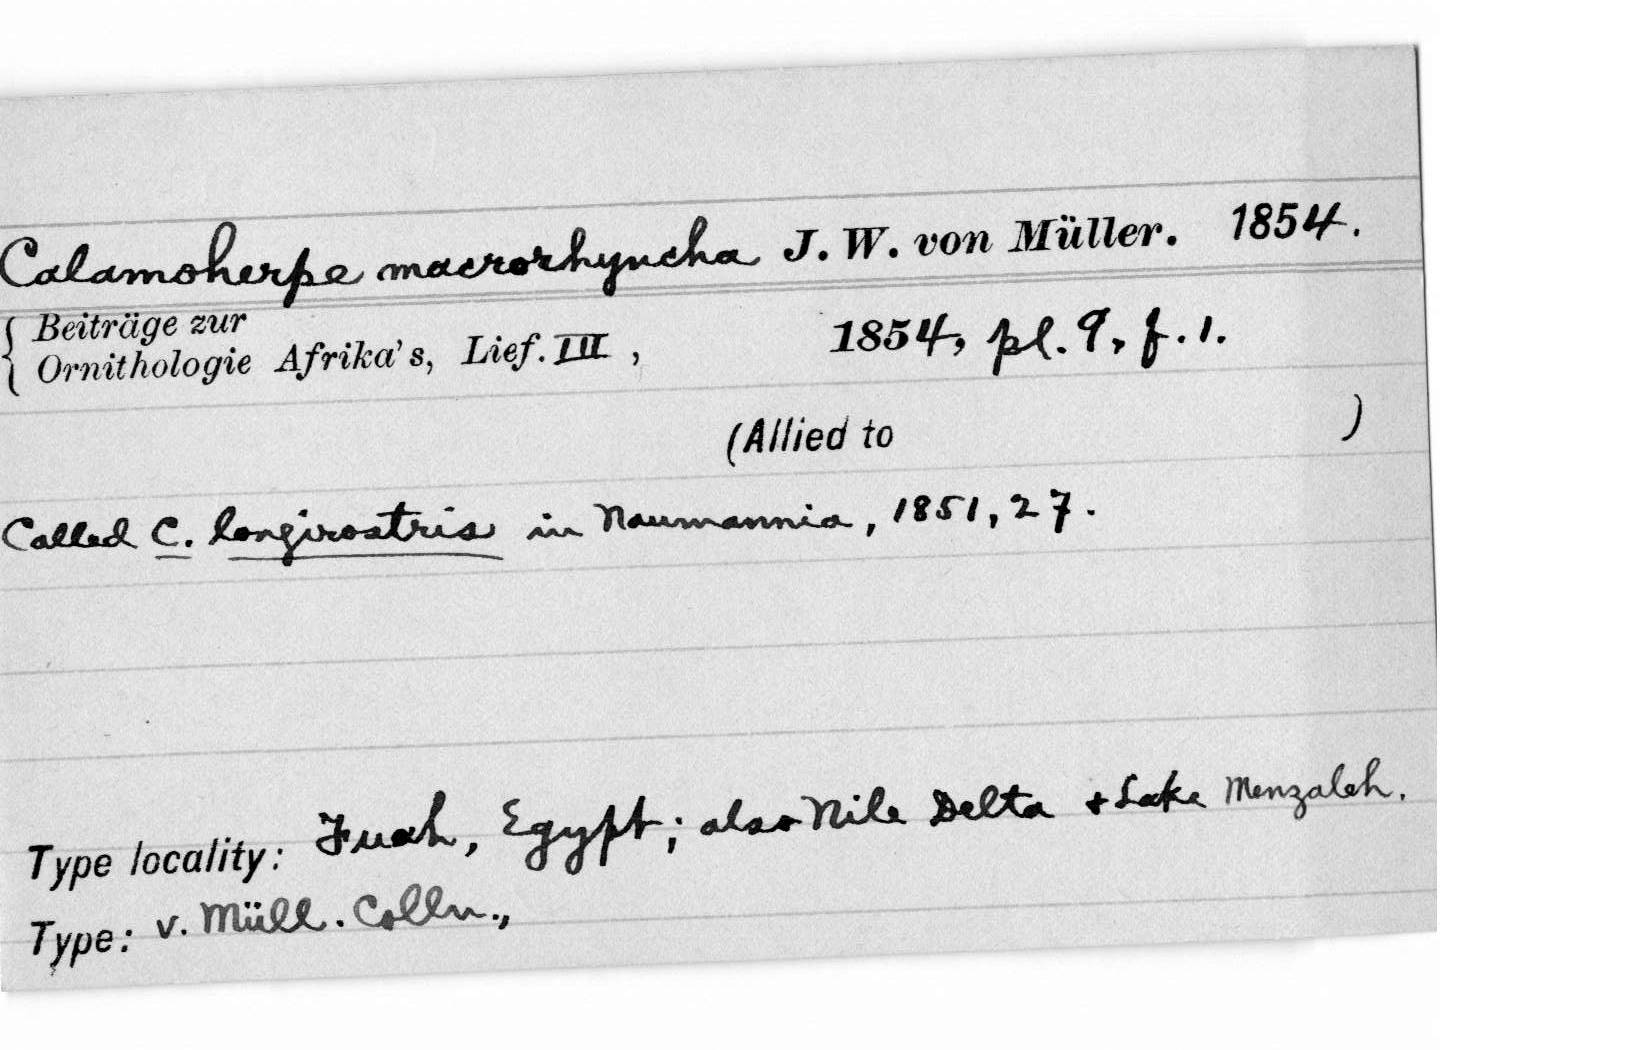 Calamoherpe macrorhyncha J. W. von Müller. 1854.
{ Beiträge zur
Ornithologie Afrika's, Lief. III, 1854, pl. 9, f. 1.
(Allied to )
Called C. longirostris in Naumannia, 1851, 27.
Type locality: Fuah, Egypt; also Nile Delta + Lake Menzaleh.
Type: v. Müll. Colln.,